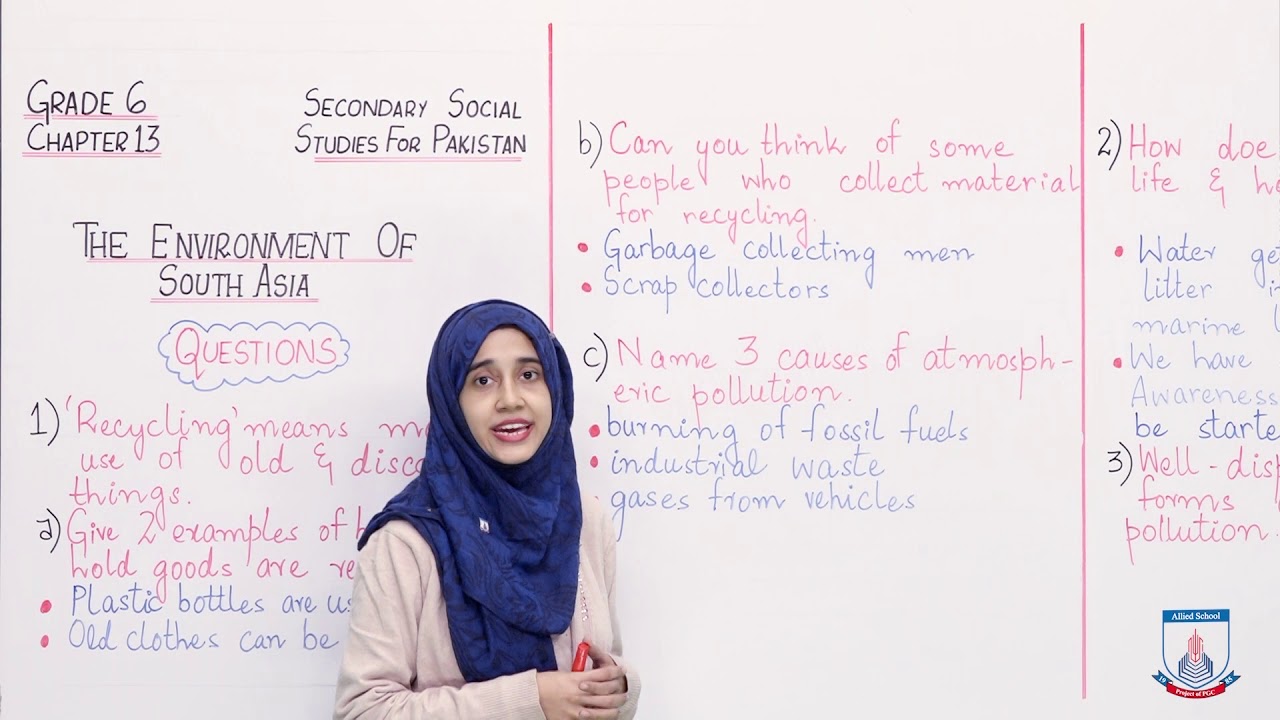 GRADE 6
CHAPTER 13
SECONDARY SOCIAL
STUDIES FOR PAKISTAN
THE ENVIRONMENT OF
SOUTH ASIA
QUESTIONS
1) 'Recycling' means
use of old &
things.
a) Give 2 examples of
hold goods are
• Plastic bottles are
• Old clothes can be
b) Can you think of some
people who collect material
for recycling.
• Garbage collecting men
• Scrap collectors
c) Name 3 causes of atmosph-
eric pollution.
• burning of fossil fuels
• industrial waste
• gases from vehicles
2) How
life &
• Water
litter
marine
• We have
Awareness
be
3) Well-
forms
pollution.
Allied School
19 85
Project of PGC